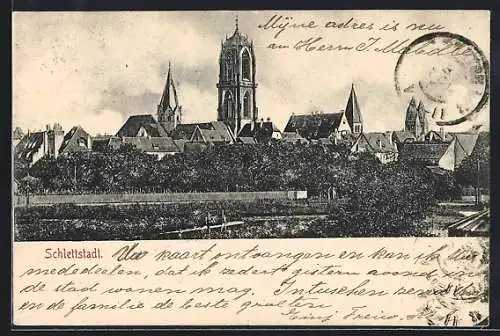 Mijne adres is nu
an Herrn J.
Schlettstadt.
Uw kaart ontvangen en kan ik U
mededeelen, dat ik sedert gistern avond in
de stad wonen mag. Intusschen
en de familie de beste groeten